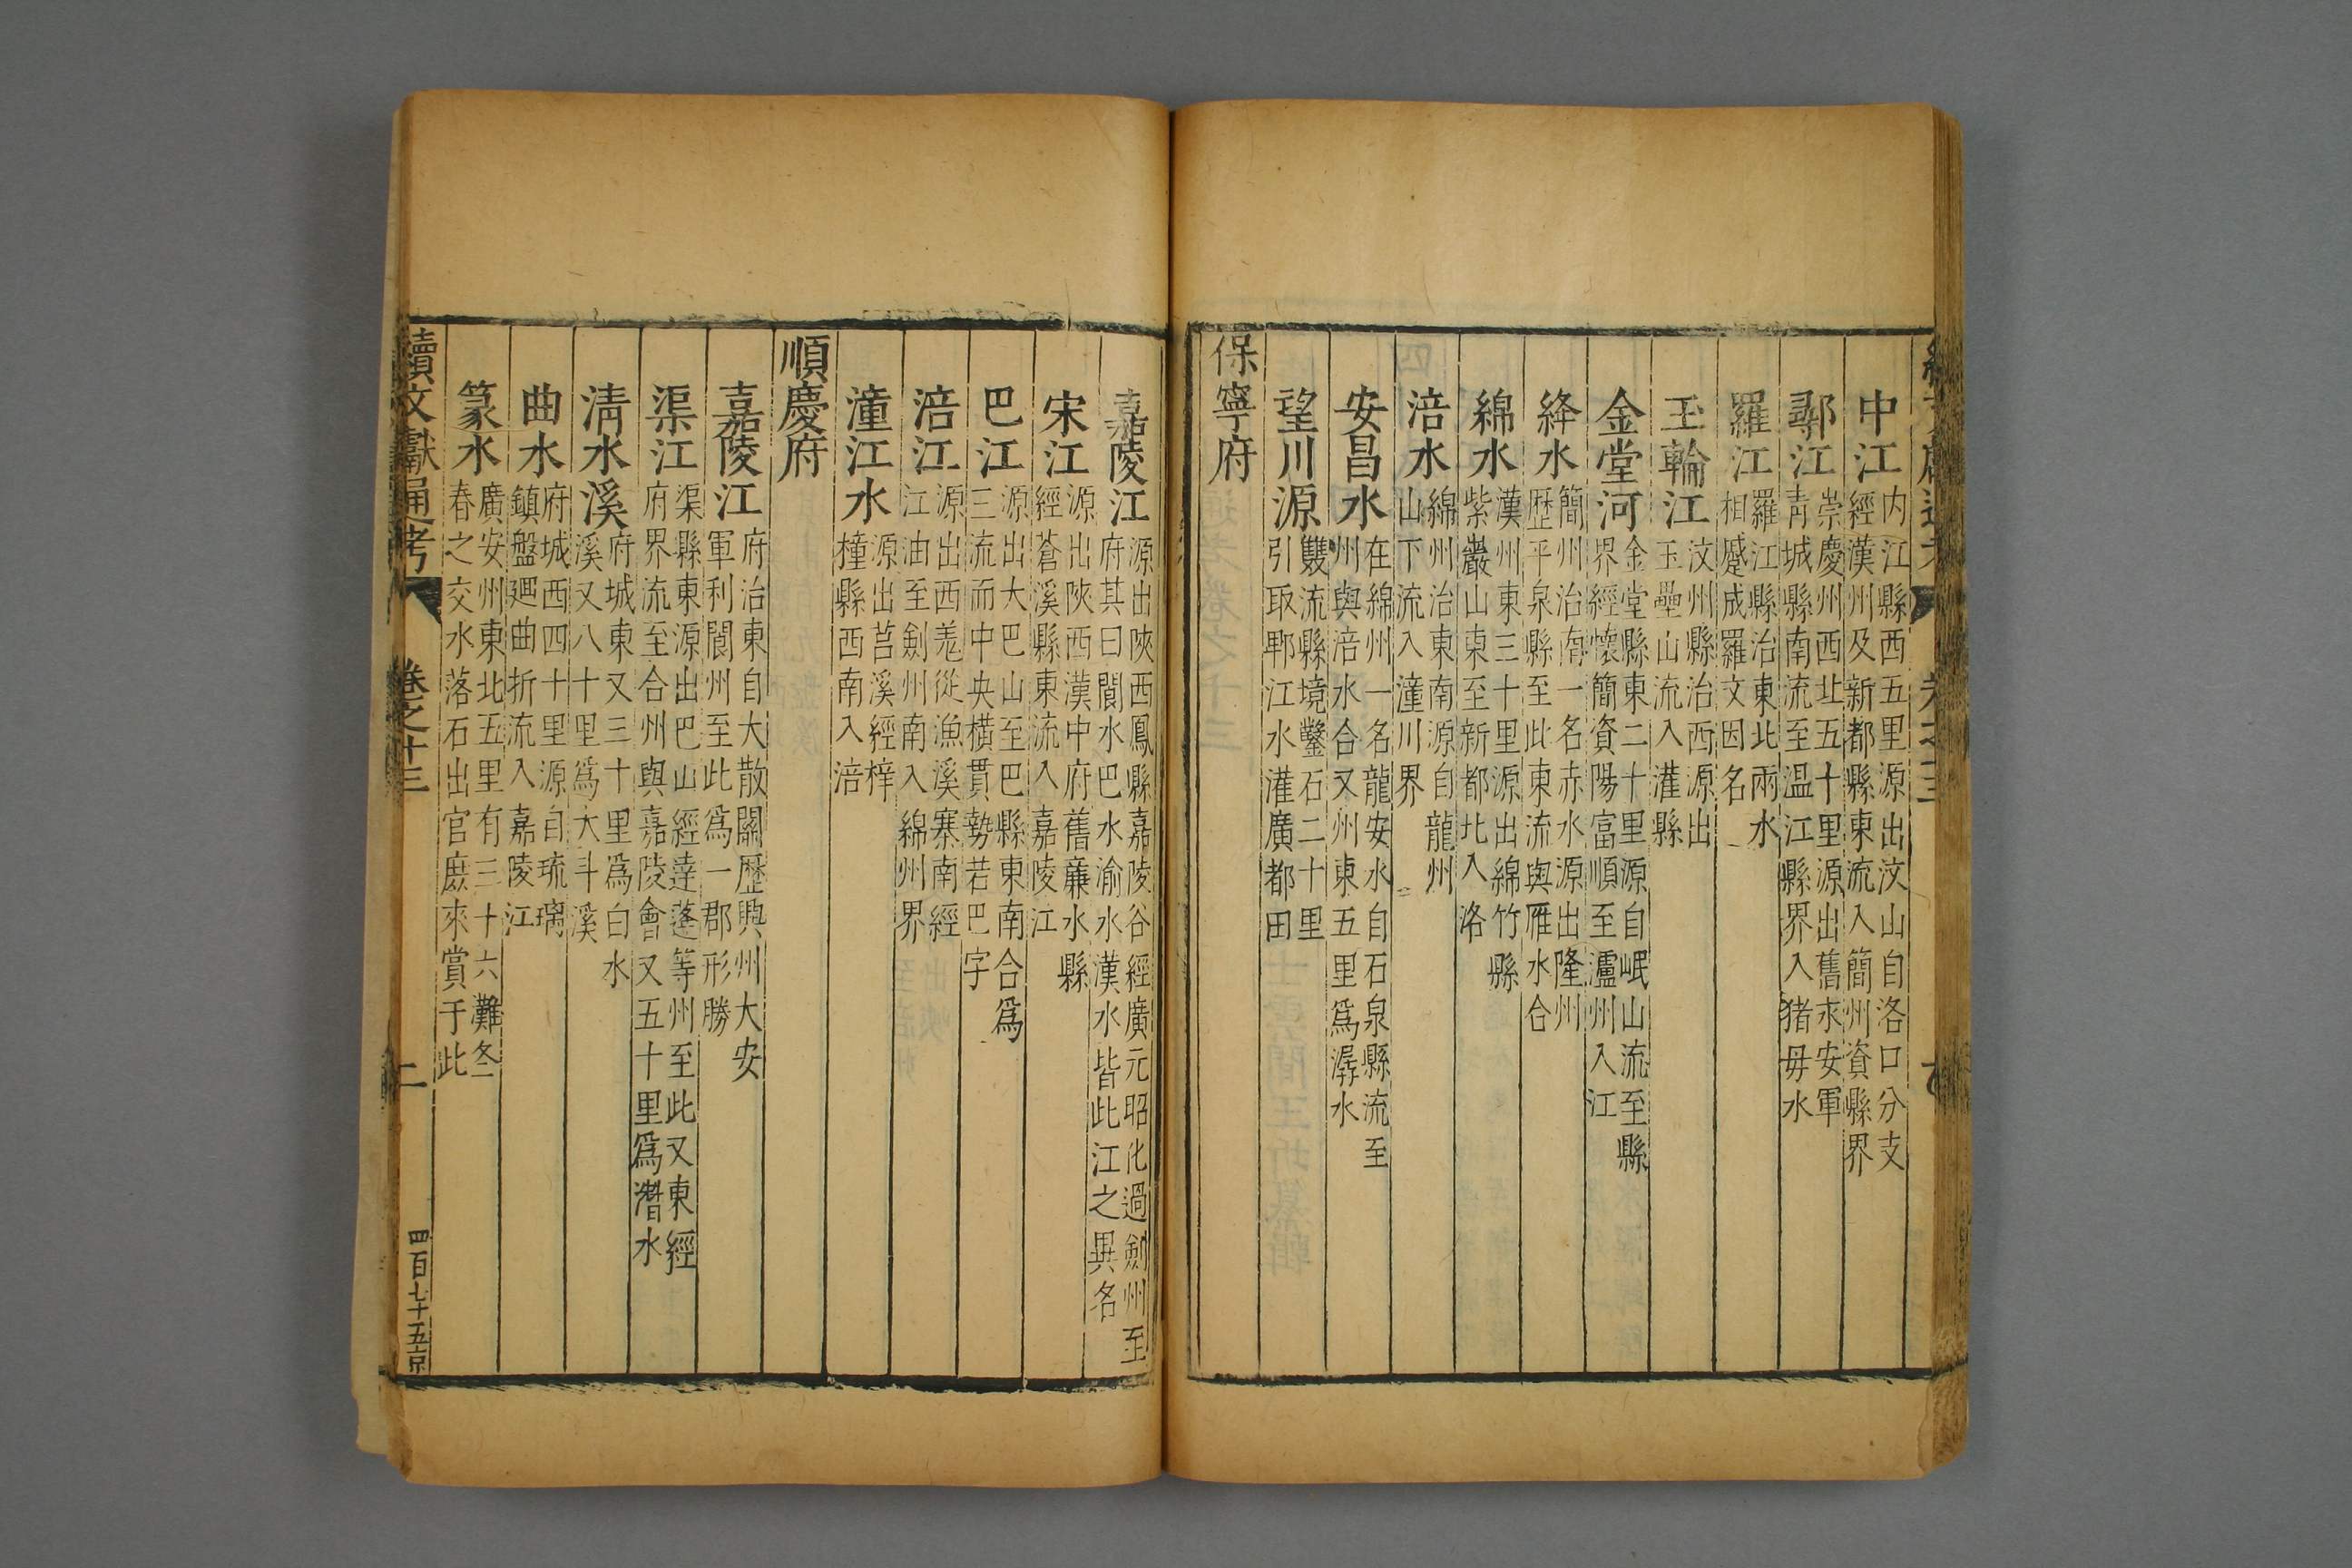 中江内江縣西五里源出汶山自洛口分支
經漢州及新都縣東流入簡州資縣界
鄩江崇慶州西北五十里源出舊永安軍
靑城縣南流至溫江縣界入猪毋水
羅江羅江縣治東北兩水
相蹙成羅文因名
玉輪江汶州縣治西源出
玉壘山流入灌縣
金堂河金堂縣東二十里源自岷山流至縣
界經懷簡資陽富順至瀘州入江
絳水簡州治南一名赤水源出隆州
歷平泉縣至此東流與雁水合
綿水漢州東三十里源出綿竹縣
紫巖山東至新都北入洛
涪水綿州治東南源自龍州
山下流入潼川界
安昌水在綿州一名龍安水自石泉縣流至
州與涪水合又州東五里爲潺水
望川源雙流縣境鑿石二十里
引取郫江水灌廣都田
保寧府
嘉陵江源出陝西鳳縣嘉陵谷經廣元昭化過劍州至
府其曰閬水巴水渝水漢水皆此江之異名
宋江源出陝西漢中府舊亷水縣
經蒼溪縣東流入嘉陵江
巴江源出大巴山至巴縣東南合爲
三流而中央橫貫勢若巴字
涪江源出西羗從漁溪寨南經
江油至劍州南入綿州界
潼江水源出菩溪經梓
橦縣西南入涪
順慶府
嘉陵江府治東自大散關歷興州大安
軍利閬州至此爲一郡形勝
渠江渠縣東源出巴山經達蓬等州至此又東經
府界流至合州與嘉陵會又五十里爲潛水
淸水溪府城東又三十里爲白水
溪又八十里爲大斗溪
曲水府城西四十里源自琉璃
鎮盤廻曲折流入嘉陵江
篆水廣安州東北五里有三十六灘冬
春之交水落石出官庶來賞于此
續文獻通考 卷之十三 二 四百七十五京